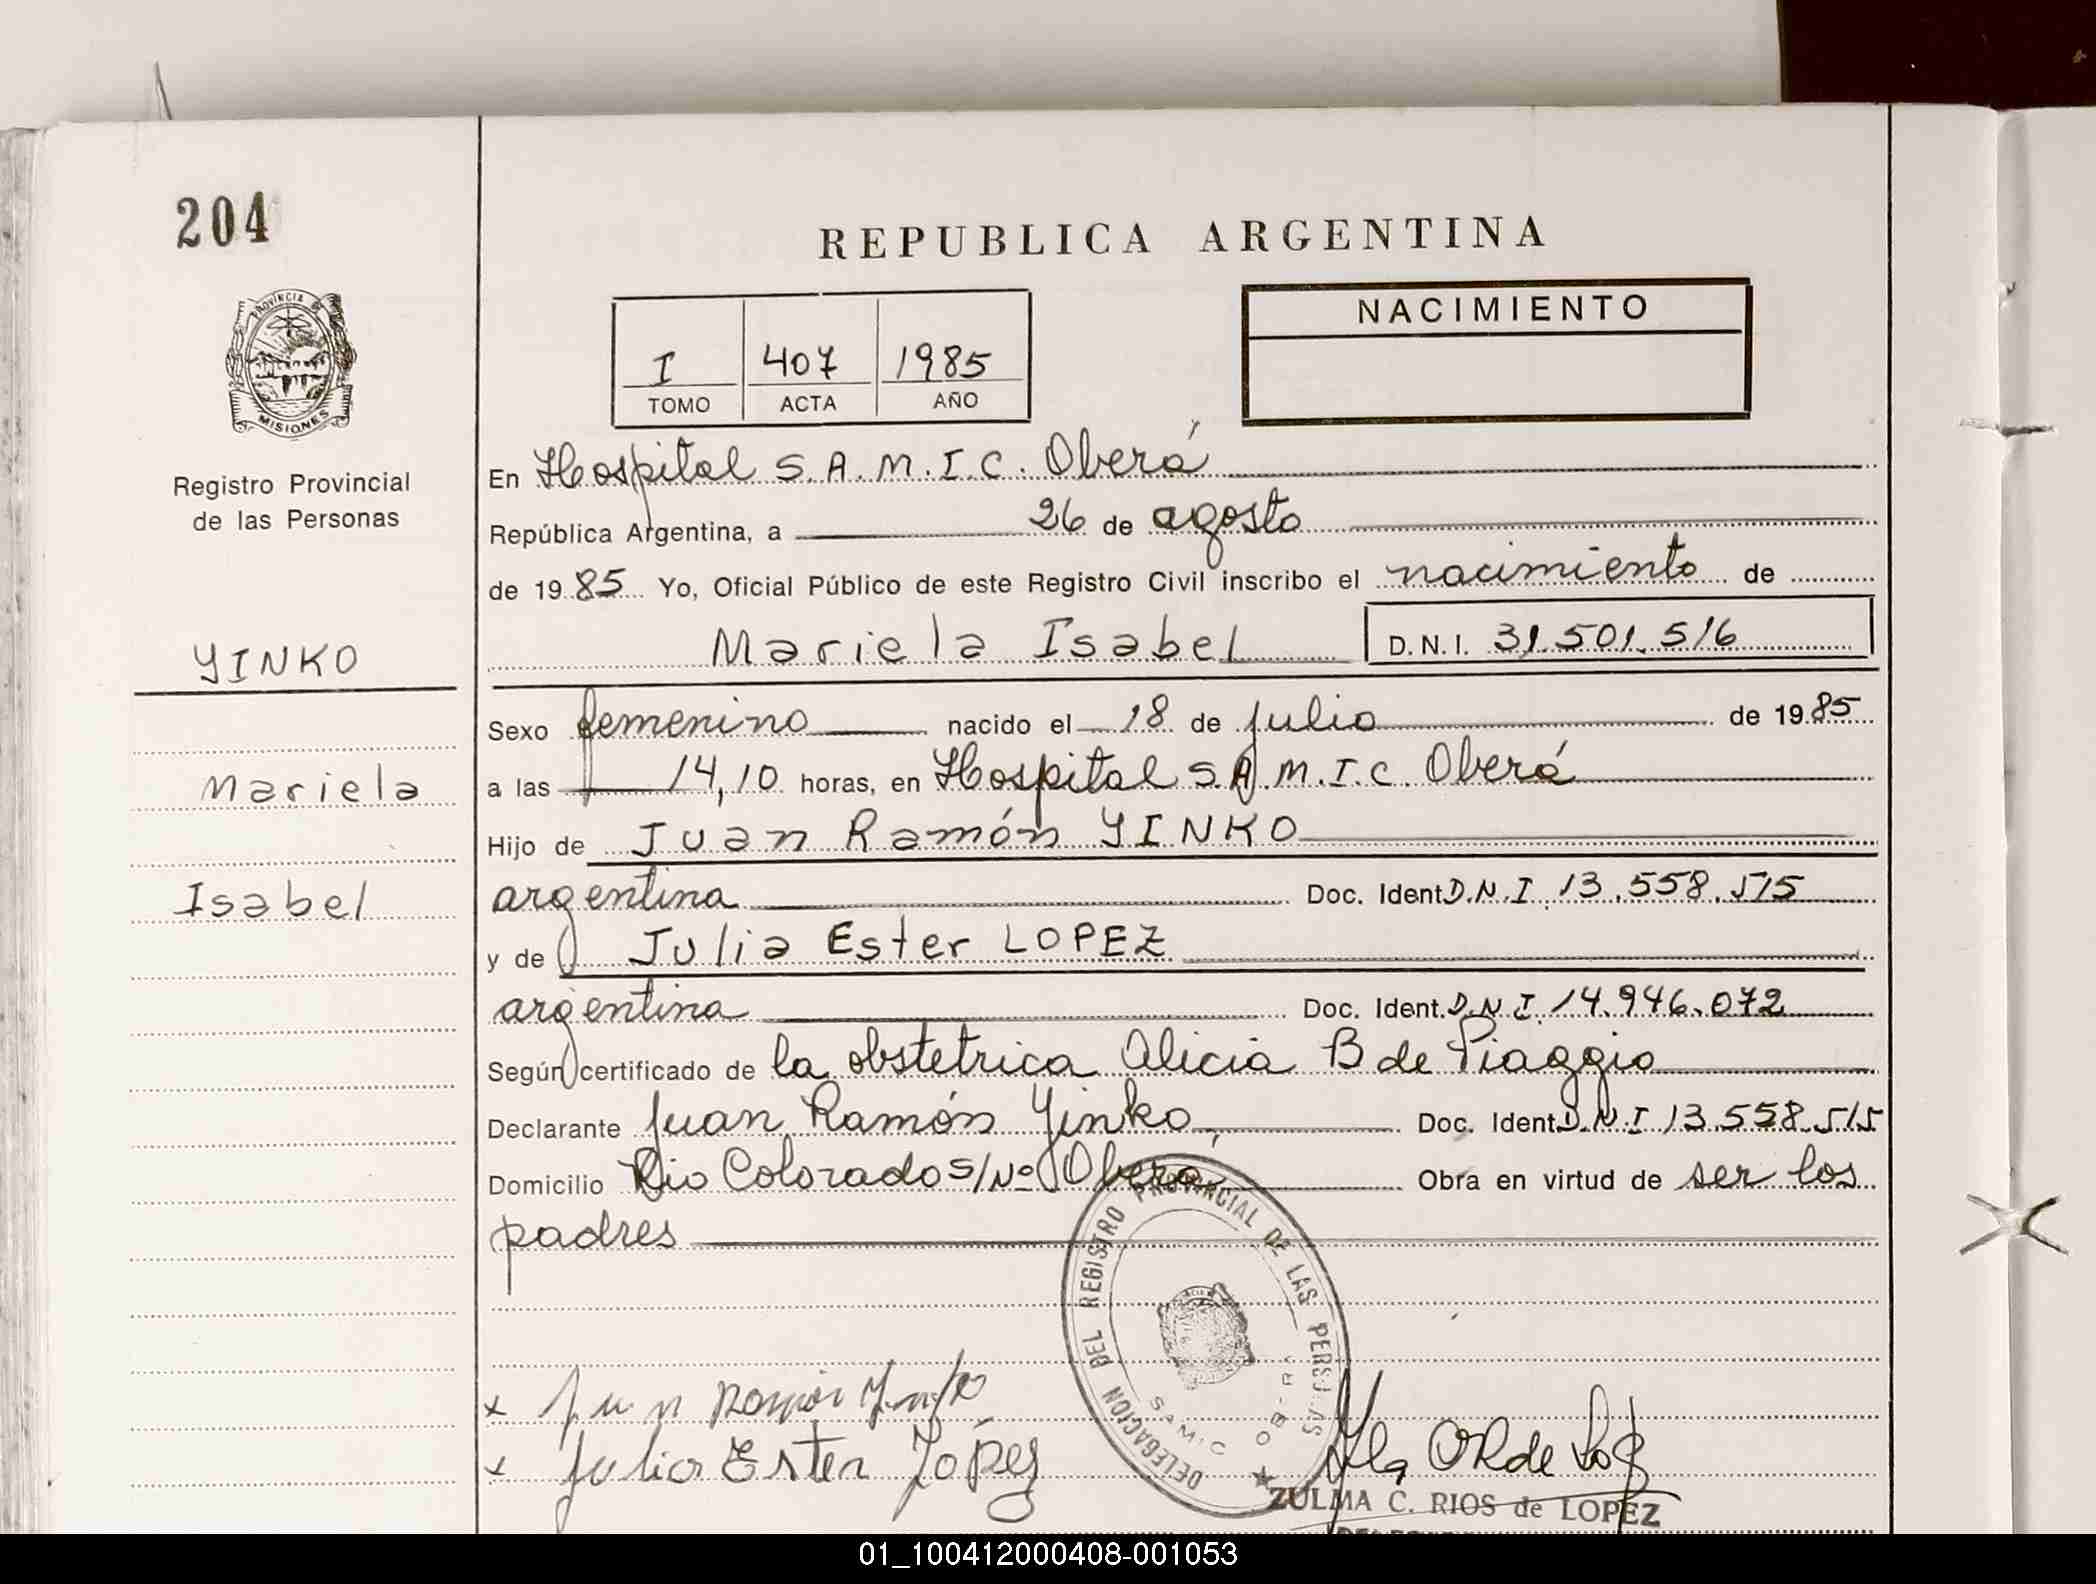 204
REPUBLICA ARGENTINA
PROVINCIA DE
MISIONES
I 407 1985
TOMO ACTA AÑO
NACIMIENTO
Registro Provincial
de las Personas
En Hospital S.A.M.I.C. Oberá
República Argentina, a 26 de agosto
de 1985 Yo, Oficial Público de este Registro Civil inscribo el nacimiento de
Mariela Isabel D.N.I. 31.501.516
YINKO
Mariela
Isabel
Sexo femenino nacido el 18 de julio de 1985
a las 14,10 horas, en Hospital S.A.M.I.C. Oberá
Hijo de Juan Ramón YINKO
argentina Doc. Ident. D.N.I. 13.558.515
y de Julia Ester LOPEZ
argentina Doc. Ident. D.N.I. 14.946.072
Según certificado de la obstetrica Alicia B de Piaggio
Declarante Juan Ramón Yinko, Doc. Ident. D.N.I 13.558.515
Domicilio Rio Colorado S/Nº Oberá Obra en virtud de ser los
padres
DELEGACION DEL REGISTRO PROVINCIAL DE LAS PERSONAS
SAMIC OBERA
x Juan Ramón Yinko
x Julia Ester López
ZULMA C. RIOS de LOPEZ
01_100412000408-001053